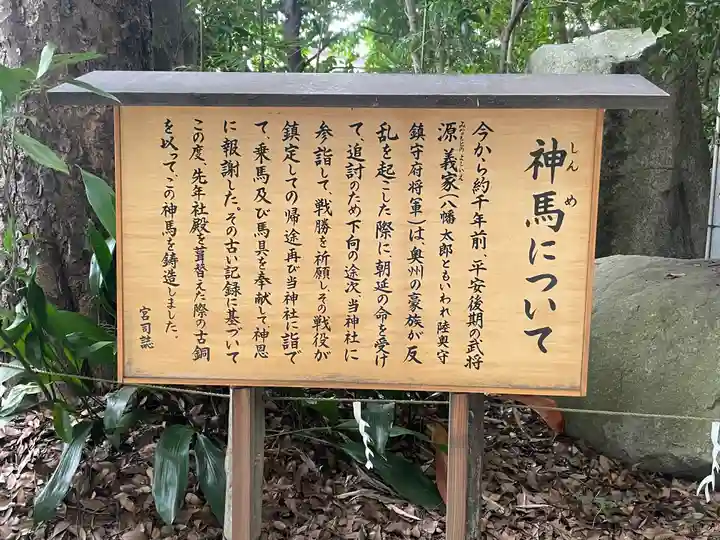 神馬について
しんめ
今から約千年前、平安後期の武将
源義家(八幡太郎ともいわれ陸奥守
みなもとのよしいえ
鎮守府将軍)は、奥州の豪族が反
乱を起こした際に、朝廷の命を受け
て、追討のため下向の途次、当神社に
参詣して、戦勝を祈願し、その戦役が
鎮定しての帰途再び当神社に詣で
て、乗馬及び馬具を奉献して神恩
に報謝した。その古い記録に基づいて
この度、先年社殿を葺替えた際の古銅
を以って、この神馬を鋳造しました。
宮司誌